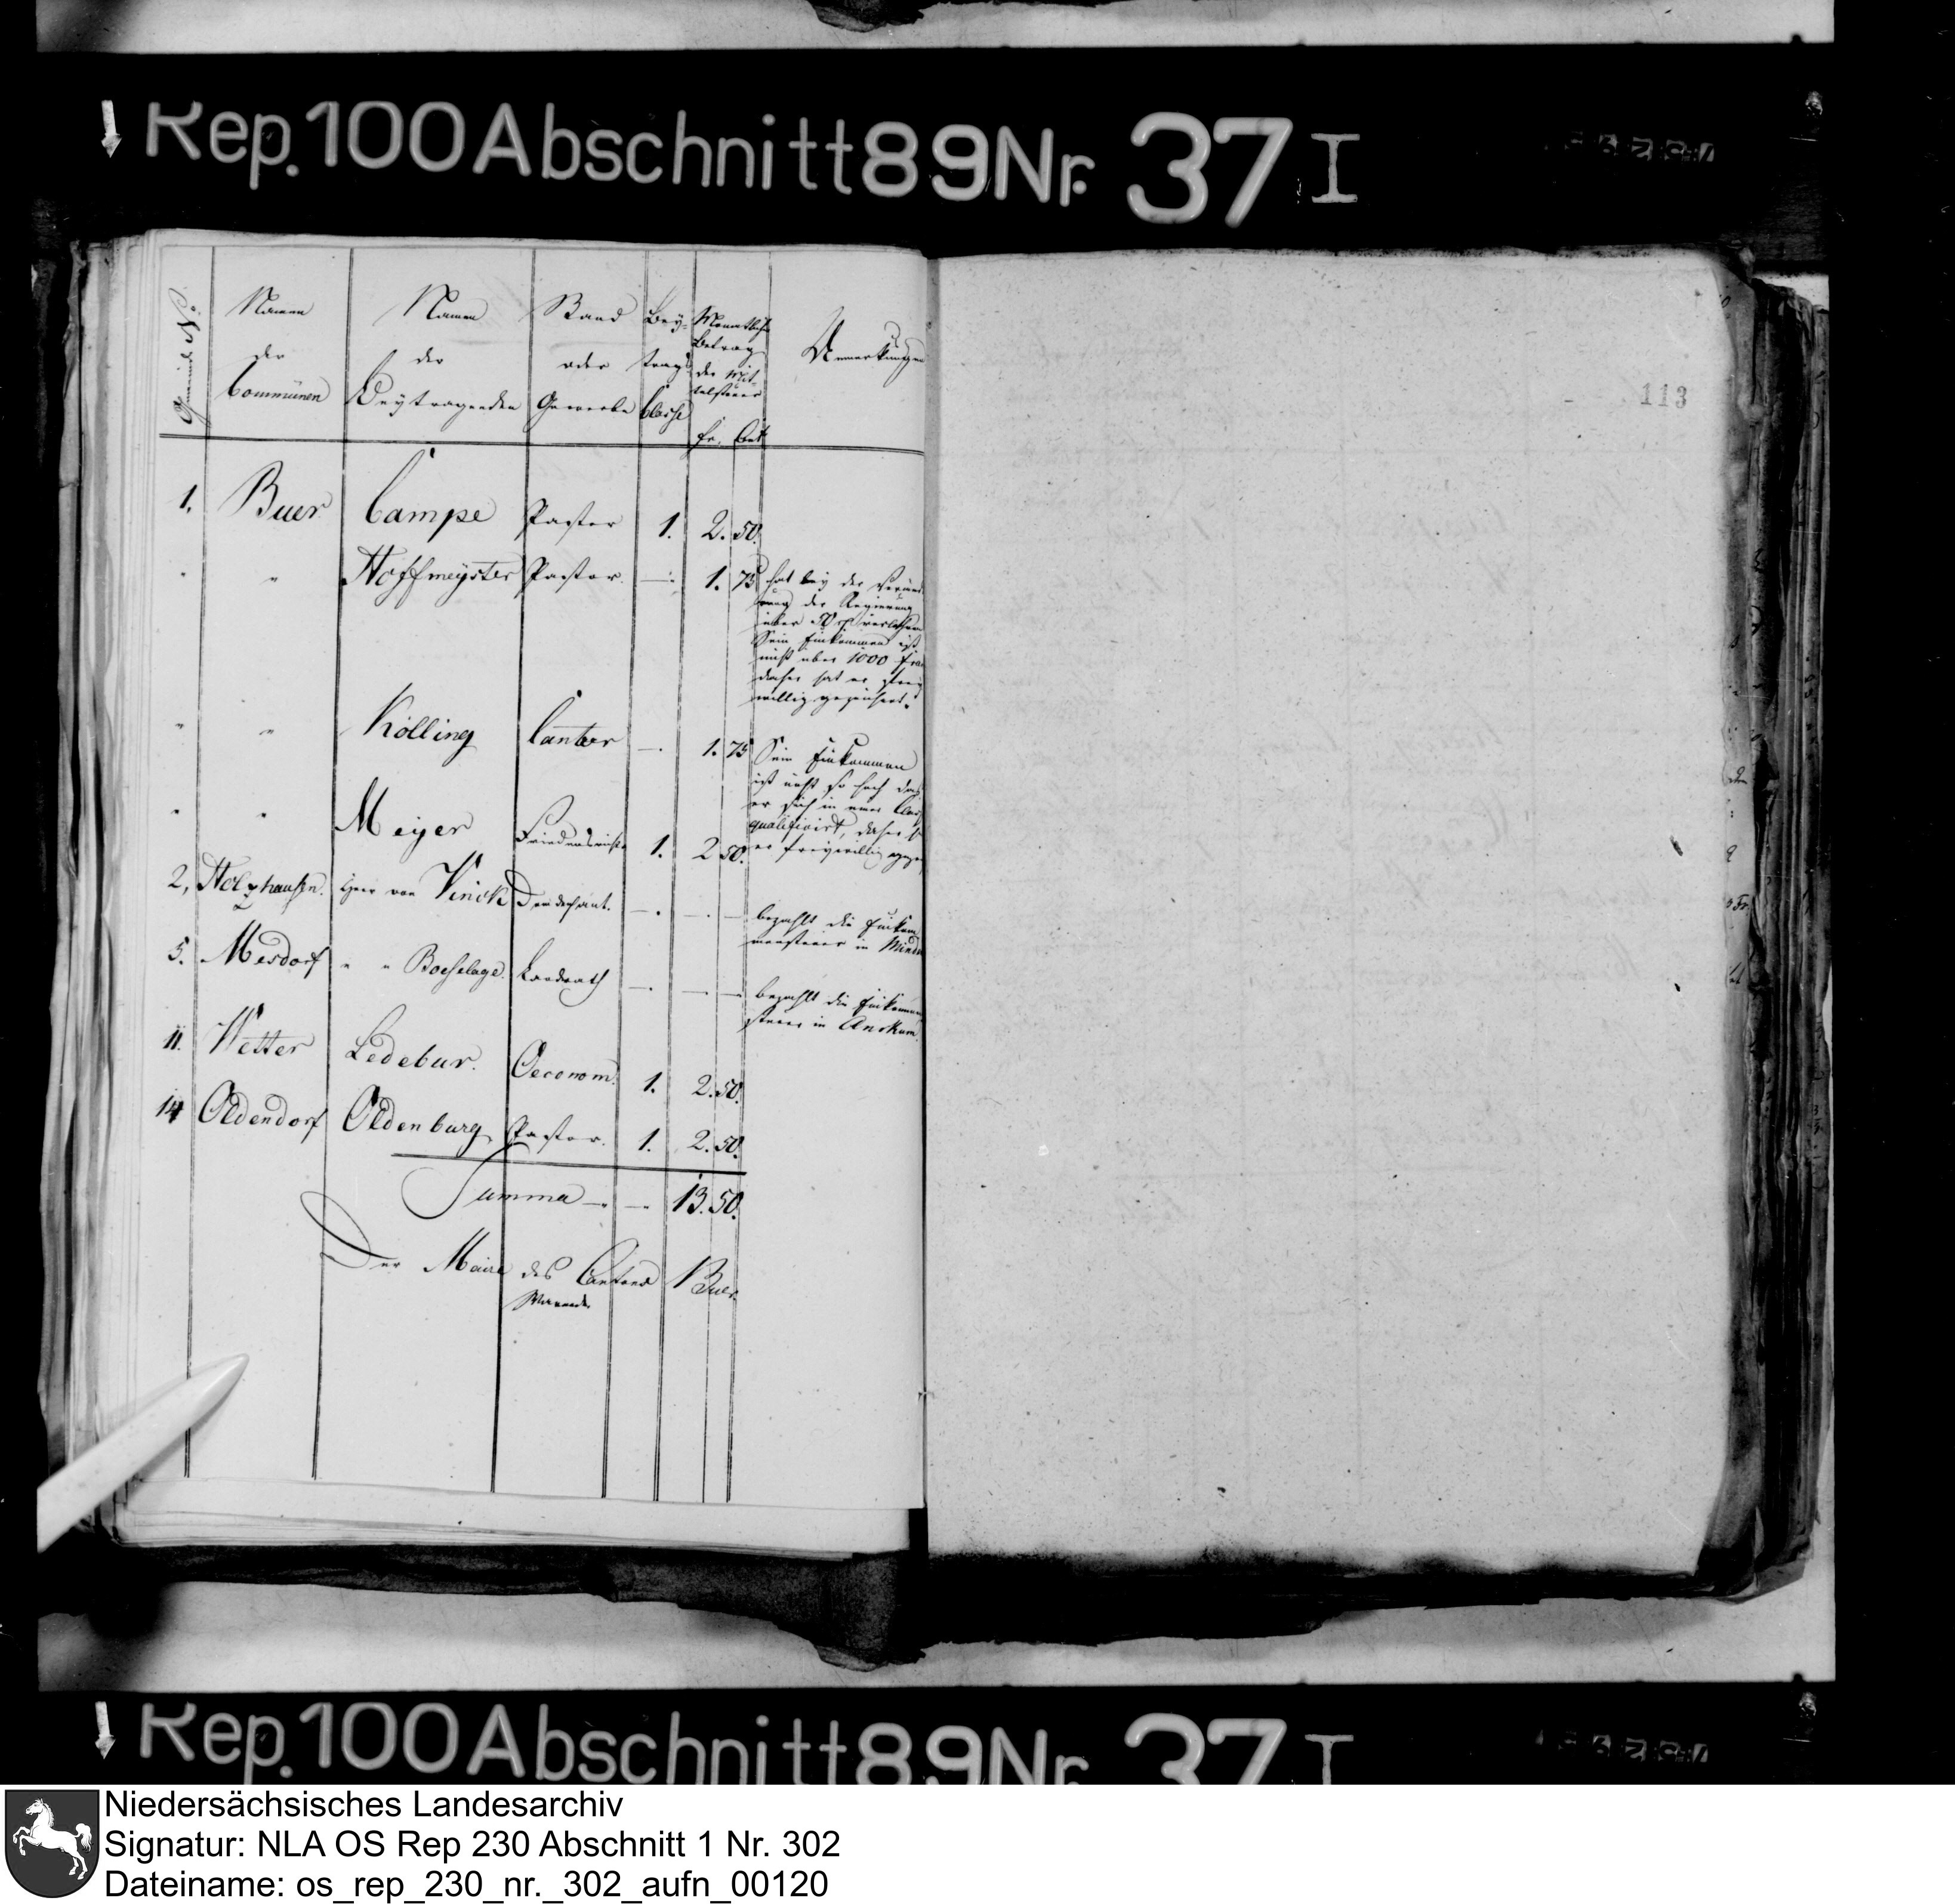 Rep. 100 Abschnitt 89 Nr. 37 I
Gemeinde No.
Namen der Communen
Namen der Beytragenden
Stand oder Gewerbe
Bey-trags Classe
Monatliche Betrag der Mit-telsteuer
fr. Cent
Anmerkungen
113
1. Buer Campe Pastor 1. 2. 50.
" " Hoffmeyster Pastor. — 1. 75
hat bey der Verände
rung der Regierung
über 50 rt verlohren
Sein Einkommen ist
nicht über 1000 fran
daher hat er frey
willig gezeichnet.
" " Kölling Cantor — 1. 75
Sein Einkommen
ist nicht so hoch das
er sich in einer Class
qualificirt, daher h
er freywillig gezei
" " Meyer Friedensricht 1. 2 50.
2, Holzhausen. Herr von Vinck Domdechant. — — —
bezahlt die Einkom
mensteuer in Minden
5. Mesdorf " " Boeselage. Landrath — — —
bezahlt die Einkommen
steuer in Anckum.
11. Wetter Ledebur. Oeconom. 1. 2. 50.
14 Oldendorf Oldenburg Pastor. 1. 2. 50.
Summa — — 13. 50.
Der Maire des Cantons Buer
Rep. 100 Abschnitt 89 Nr. 37 I
Niedersächsisches Landesarchiv
Signatur: NLA OS Rep 230 Abschnitt 1 Nr. 302
Dateiname: os_rep_230_nr._302_aufn_00120